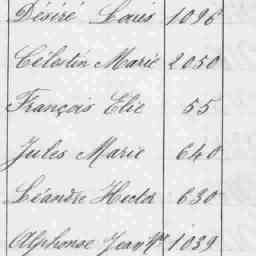 Désiré Louis 1096
Célestin Marie 2050
François Elie 55
Jules Marie 640
Léandre Hector 630
Alphonse Jean 1039